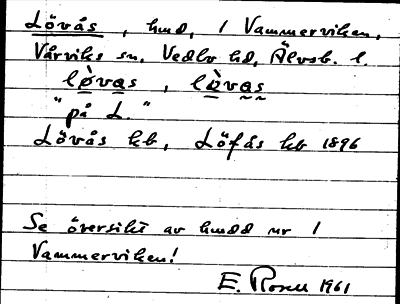 Lövås, hmd, i Vammerviken,
Vårviks sn, Vedbo hd, Älvsb. l.
lø̀vas, lø̀vas
"på L."
Lövås kb, Löfås kb 1896
Se översikt av hmdd nr 1
Vammerviken!
E. Rosell 1961